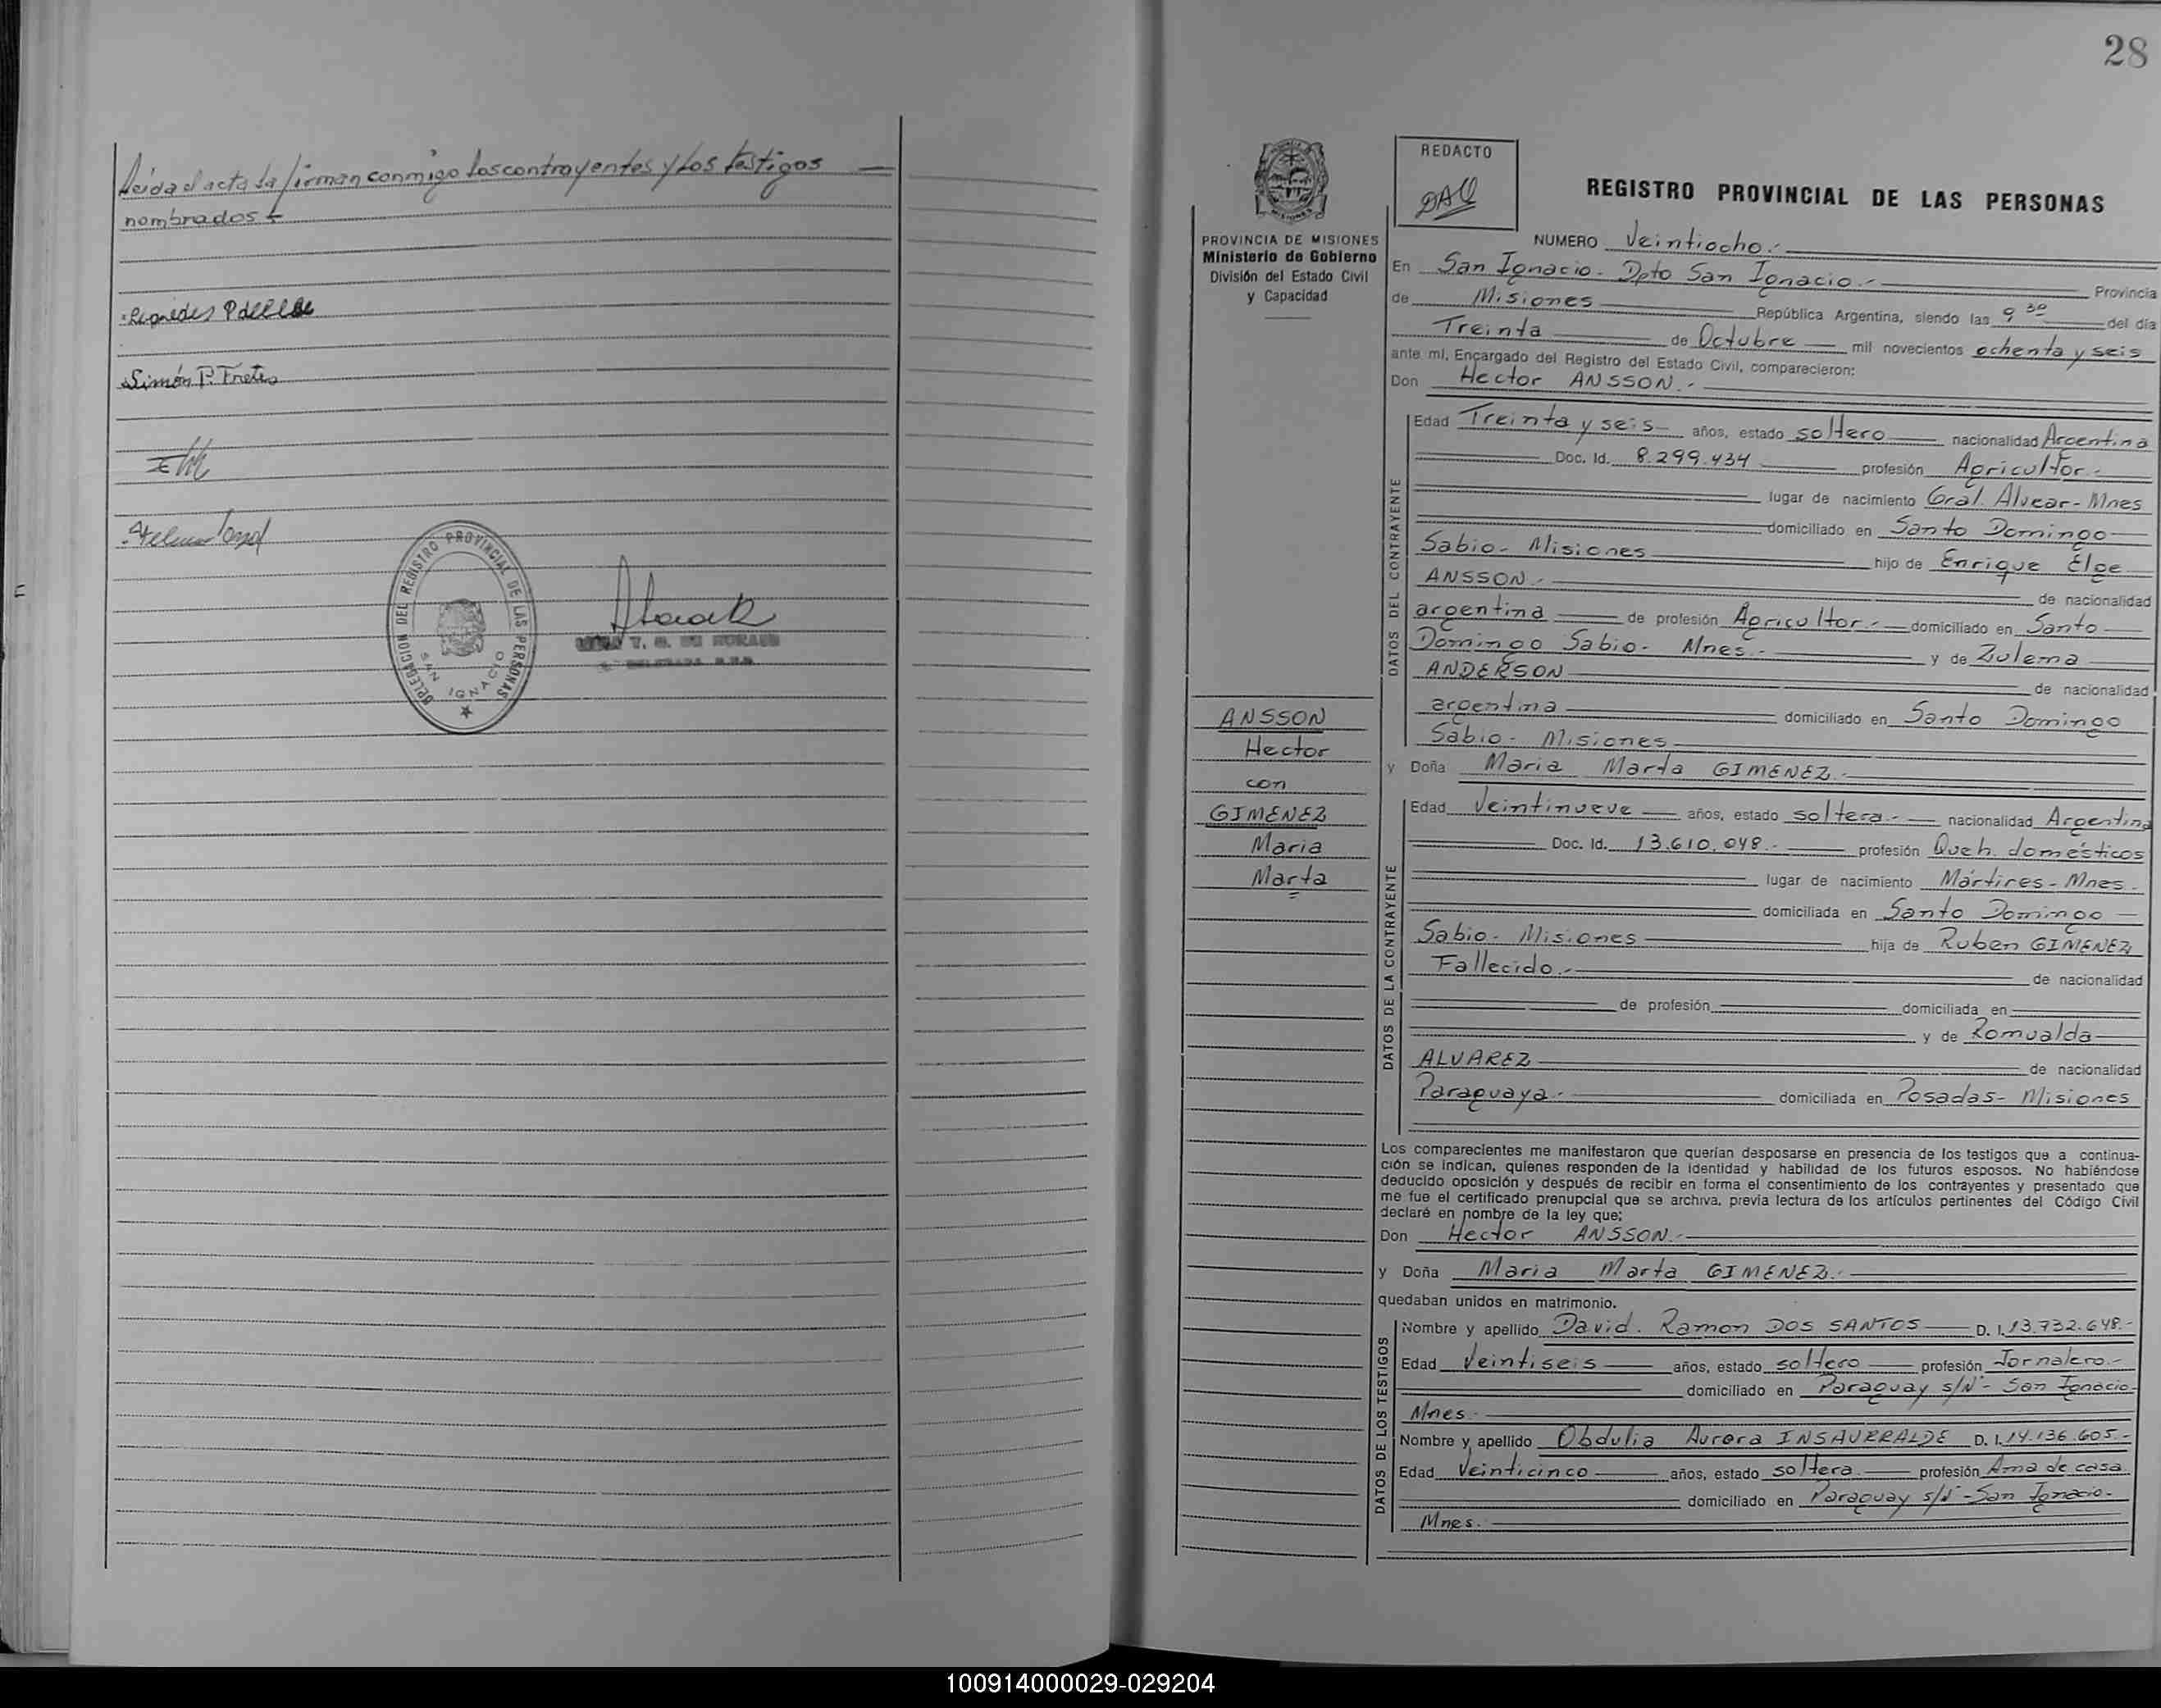 Leida el acta la firman conmigo los contrayentes y los testigos
nombrados
Simón P. Fretes
DELEGACION DEL REGISTRO PROVINCIAL DE LAS PERSONAS
SAN IGNACIO
28
REDACTO
DAQ
PROVINCIA DE MISIONES
Ministerio de Gobierno
División del Estado Civil
y Capacidad
ANSSON
Hector
con
GIMENEZ
Maria
Marta
REGISTRO PROVINCIAL DE LAS PERSONAS
NUMERO Veintiocho.-
En San Ignacio - Dpto San Ignacio.- Provincia
de Misiones República Argentina, siendo las 9 30 del día
Treinta de Octubre mil novecientos ochenta y seis
ante mí, Encargado del Registro del Estado Civil, comparecieron:
Don Hector ANSSON.-
DATOS DEL CONTRAYENTE
Edad Treinta y seis años, estado soltero nacionalidad Argentina
Doc. Id. 8.299.434 profesión Agricultor.-
lugar de nacimiento Gral. Alvear - Mnes
domiciliado en Santo Domingo
Sabio - Misiones hijo de Enrique Elge
ANSSON.- de nacionalidad
argentina de profesión Agricultor.- domiciliado en Santo
Domingo Sabio - Mnes.- y de Zulema
ANDERSON de nacionalidad
argentina domiciliado en Santo Domingo
Sabio - Misiones
y Doña Maria Marta GIMENEZ.-
DATOS DE LA CONTRAYENTE
Edad Veintinueve años, estado soltera.- nacionalidad Argentina
Doc. Id. 13.610.048.- profesión Queh. domésticos
lugar de nacimiento Mártires - Mnes.
domiciliada en Santo Domingo
Sabio - Misiones hija de Ruben GIMENEZ
Fallecido.- de nacionalidad
de profesión domiciliada en
y de Romualda
ALVAREZ de nacionalidad
Paraguaya.- domiciliada en Posadas - Misiones
Los comparecientes me manifestaron que querían desposarse en presencia de los testigos que a continua-
ción se indican, quienes responden de la identidad y habilidad de los futuros esposos. No habiéndose
deducido oposición y después de recibir en forma el consentimiento de los contrayentes y presentado que
me fue el certificado prenupcial que se archiva, previa lectura de los artículos pertinentes del Código Civil
declaré en nombre de la ley que:
Don Hector ANSSON.-
y Doña Maria Marta GIMENEZ.-
quedaban unidos en matrimonio.
DATOS DE LOS TESTIGOS
Nombre y apellido David. Ramon DOS SANTOS D. I. 13.732.648.-
Edad Veintiseis años, estado soltero profesión Jornalero.-
domiciliado en Paraguay s/N° - San Ignacio -
Mnes.-
Nombre y apellido Obdulia Aurora INSAURRALDE D. I. 14.136.605.-
Edad Veinticinco años, estado soltera profesión Ama de casa
domiciliado en Paraguay s/N° - San Ignacio -
Mnes.
100914000029-029204